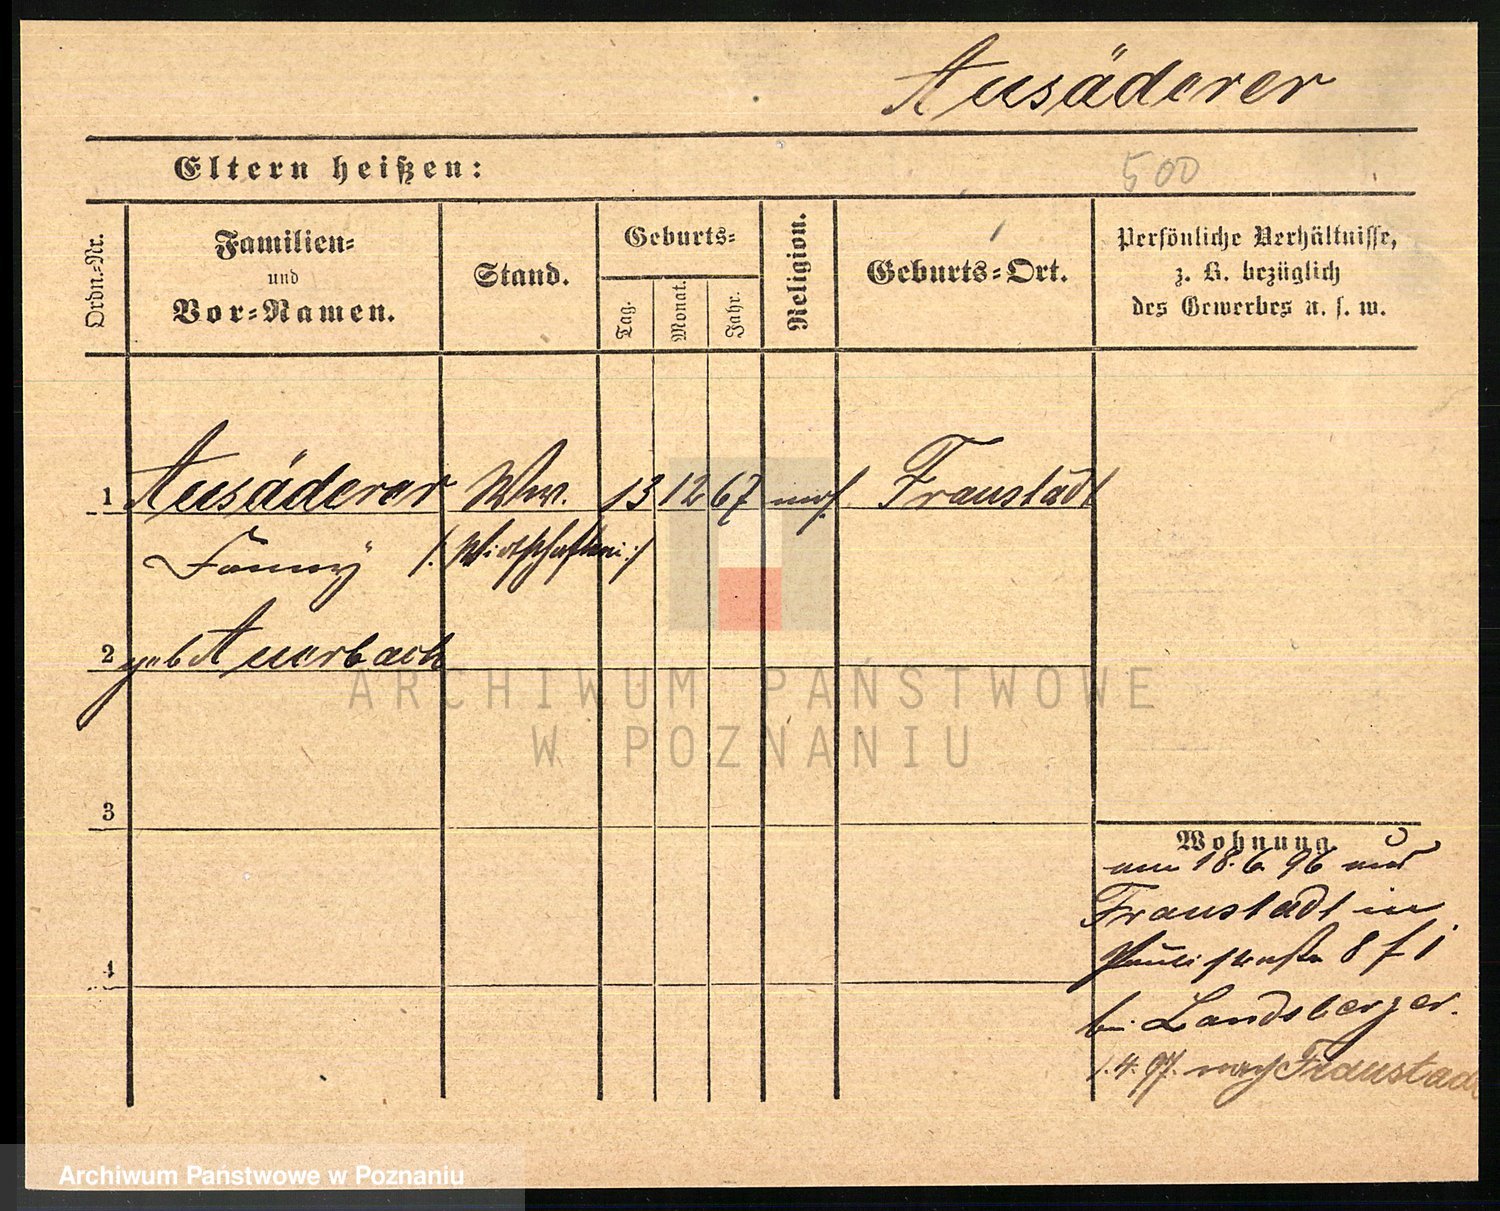 Ausäderer
Eltern heißen:
500
Ordn.-Nr.
Familien-
und
Vor-Namen.
Stand.
Geburts-
Tag.
Monat.
Jahr.
Religion.
Geburts-Ort.
Persönliche Verhältnisse,
z. B. bezüglich
des Gewerbes u. s. w.
1 Ausäderer Ww. 13 12 67 mos. Fraustadt
Fanny
2 geb Auerbach
3
4
Wohnung
am 18.6 96 aus
Fraustadt in
8 f I
bei Landsberger.
1.4.97. nach Fraustadt
ARCHIWUM PAŃSTWOWE
W POZNANIU
Archiwum Państwowe w Poznaniu